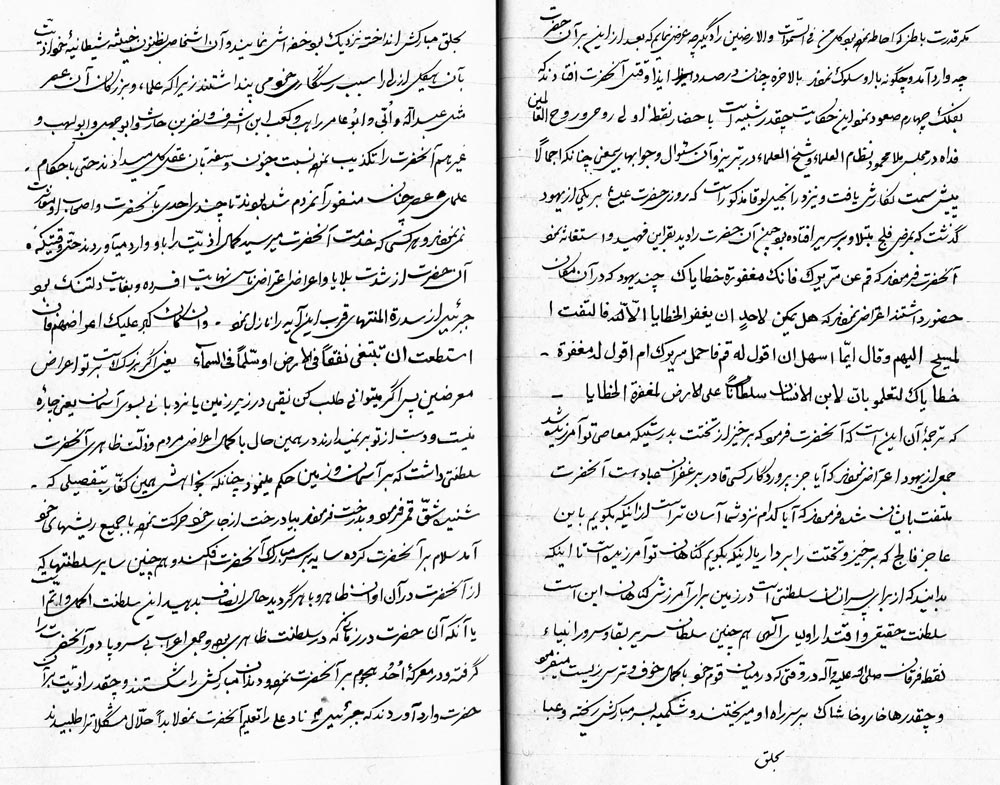 مکر قدرت باطنه که احاطه نموده بود کل من فی السموات والارضین را دیگر چه عرض نمایم که بعد از این بر آن حضرت
چه وارد آمد و چگونه با او سلوک نمودند بالاخره چنان در صدد ایذا وقتی آنحضرت افتادند که
بفلک چهارم صعود نمود و این حکایت چقدر شبیه است باحضار نقطه اولی روحی و روح العالمین
فداه در مجلس ملا محمود نظام العلماء و شیخ العلماء در تبریز و آن سئوال و جوابها بر جمعی چنانکه اجمالا
پیش سمت نگارش یافت و نیز در انجیل لوقا مذکور است که روزی حضرت عیسی بر یکی از یهود
گذشت که بمرض فلج مبتلا و بر سریر افتاده بود چون آن حضرت را دید بقراین فهمید و استغاثه نمود
آنحضرت فرمودند که قم عن سریرک فانک مغفورة خطایاک چند یهود که در آن مکان
حضور داشتند اعتراض نمودند که هل یمکن لاحد ان یغفر الخطایا الا الله فالتفت ا
لمسیح الیهم وقال ایما اسهل ان اقول له قم فاحمل سریرک ام اقول له مغفورة -
خطایاک لتعلموا بان لابن الانسان سلطانا علی الارض لمغفرة الخطایا -
که ترجمه آن این است که آنحضرت فرمود که برخیز از تخت بدرستیکه معاصی تو آمرزیده شد
جمعی از یهود اعتراض نمودند که آیا جز پروردگار کسی قادر بر غفران عباد است آنحضرت
ملتفت بایشان شده فرمودند که آیا کدام نزد شما آسان تر است از اینکه بگویم باین
عاجز فالج که برخیز و تختت را بردار یا اینکه بگویم گناهان تو آمرزیده است تا اینکه
بدانید که از برای پسر انسان سلطنتی است در زمین برای آمرزش گناهان این است
سلطنت حقیقی و اقتدار اولیای الهی هم چنین سلطان سریر بقا و سرور انبیاء
نقطه فرقان صلی الله علیه و آله در وقتی که در میان قوم خود با کمال خوف و ترس زیست میفرمود
و چقدرها خار و خاشاک بر سر راه او میریختند و شکمبه بسر مبارکش ریخته و عبا
بحلق
بحلق مبارکش انداخته نزدیک بود خفه اش نمایند و آن اشخاص بظنون خبیثه شیطانیه خود اذیت
بآن هیکل ازلی را سبب رستگاری خود می پنداشتند زیرا که علماء و بزرگان آن عصر
مثل عبدالله و ابی و ابو عامر راهب و کعب ابن اشرف و نضر بن حارث و ابو جهل و ابو لهب و
غیرهم آنحضرت را تکذیب نموده نسبت جنون و سفه بآن عقل کل میدادند حتی باحکام
علمای عصر چنان منفور آن مردم شده بودند تا چندی احدی با آنحضرت و اصحاب او معاشرت
نمی نمودند و هر کسی که خدمت آنحضرت میرسید کمال اذیت را باو وارد میآوردند حتی وقتیکه
آن حضرت از شدت بلایا و اعراض و اعتراض ناس بی نهایت افسرده و بغایت دلتنگ بود
جبرئیل از سدرة المنتهای قرب این آیه را نازل نمود - وان کان کبر علیک اعراضهم فان
استطعت ان تبتغی نفقا فی الارض او سلما فی السماء یعنی اگر بزرگ است بر تو اعراض
معرضین پس اگر میتوانی طلب کن نقبی در زیر زمین یا نردبانی بسوی آسمان یعنی چاره
نیست و دست از تو بر نمیدارند در همین حال با کمال اعراض مردم و ذلت ظاهری آنحضرت
سلطنتی داشت که بر آسمان و زمین حکم مینمود چنانکه بخواهش همین کفار بتفصیلی که -
شنیده شق قمر فرمود و بدرخت فرموده بیا درخت از جای خود حرکت نمود با جمیع ریشهای خود
آمد سلام بر آنحضرت کرده سایه بسر مبارک آنحضرت فکند و هم چنین سایر سلطنتها که
از آنحضرت در آن اوان ظاهر و باهر گردید حال انصاف بدهید این سلطنت اکمل و اتم است
یا آنکه آن حضرت در زمانی که در سلطنت ظاهری بود و جمعی اعراب بی سر و پا دور آنحضرت را
گرفته و در معرکه احد هجوم بر آنحضرت نموده و دندان مبارکش را شکستند و چقدر اذیت بر آن
حضرت وارد آوردند که جبرئیل ناد علی را تعلیم آنحضرت نمود لابدا حلال مشکلات را طلبیدند